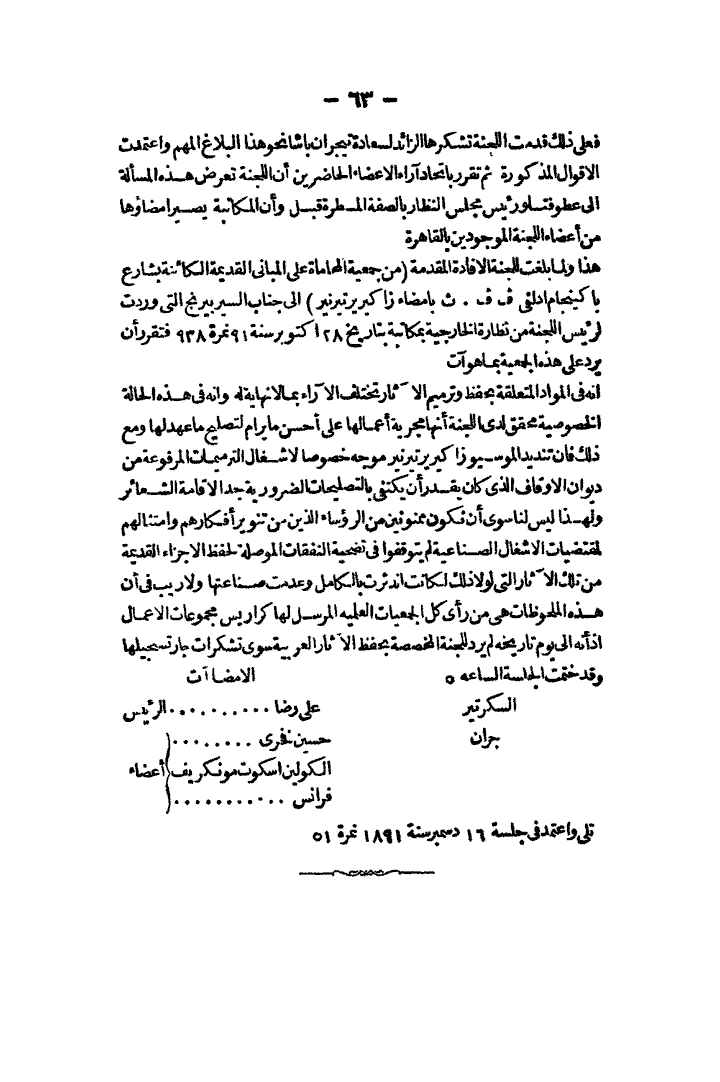 — ٦٣ —
فعلى ذلك قدمت اللجنة تشكرها الزائد لسعادة تيجران باشا نحو هذا البلاغ المهم واعتمدت
الاقوال المذكورة ثم تقرر باتحاد آراء الاعضاء الحاضرين أن اللجنة تعرض هذه المسألة
الى عطوفتلو رئيس مجلس النظار بالصفة المسطرة قبل وأن المكاتبة يصير امضاؤها
من أعضاء اللجنة الموجودين بالقاهرة
هذا ولما بلغت للجنة الافادة المقدمة (من جمعية المحاماة على المبانى القديمة الكائنة بشارع
باكينجام ادلفى ڤ ڤ . ث بامضاء زاكير يرتيرنير) الى جناب السير بيرنج التى وردت
لرئيس اللجنة من نظارة الخارجية بمكاتبة بتاريخ ٢٨ اكتوبر سنة ٩١ نمرة ٩٣٨ فتقرر أن
يرد على هذه الجمعية بما هو آت
انه فى المواد المتعلقة بحفظ وترميم الآثار تختلف الآراء بما لا نهاية له وانه فى هذه الحالة
الخصوصية محقق لدى اللجنة أنها مجرية أعمالها على أحسن ما يرام لتصليح ما عهد لها ومع
ذلك فان تنديد الموسيو زاكير يرتيرنير موجه خصوصا لاشغال الترميمات المرفوعة من
ديوان الاوقاف الذى كان يقدر أن يكتفى بالتصليحات الضرورية جدا لاقامة الشعائر
ولهذا ليس لنا سوى أن نكون ممنونين من الرؤساء الذين من تنوير أفكارهم وامتثالهم
لمقتضيات الاشغال الصناعية لم يتوقفوا فى تضحية النفقات الموصلة لحفظ الاجزاء القديمة
من تلك الآثار التى لولا ذلك لكانت اندثرت بالكامل وعدمت صناعتها ولا ريب فى أن
هذه الملحوظات هى من رأى كل الجمعيات العلميه المرسل لها كراريس مجموعات الاعمال
اذ أنه الى يوم تاريخه لم يرد للجنة المخصصة بحفظ الآثار العربية سوى تشكرات جار تسجيلها
وقد ختمت الجلسة الساعه ٥ الامضاآت
السكرتير على رضا .......... الرئيس
جران حسين فخرى ........
الكولين اسكوت مونكريف أعضاء
فرانس ...........
تلى واعتمد فى جلسة ١٦ دسمبر سنة ١٨٩١ نمرة ٥١